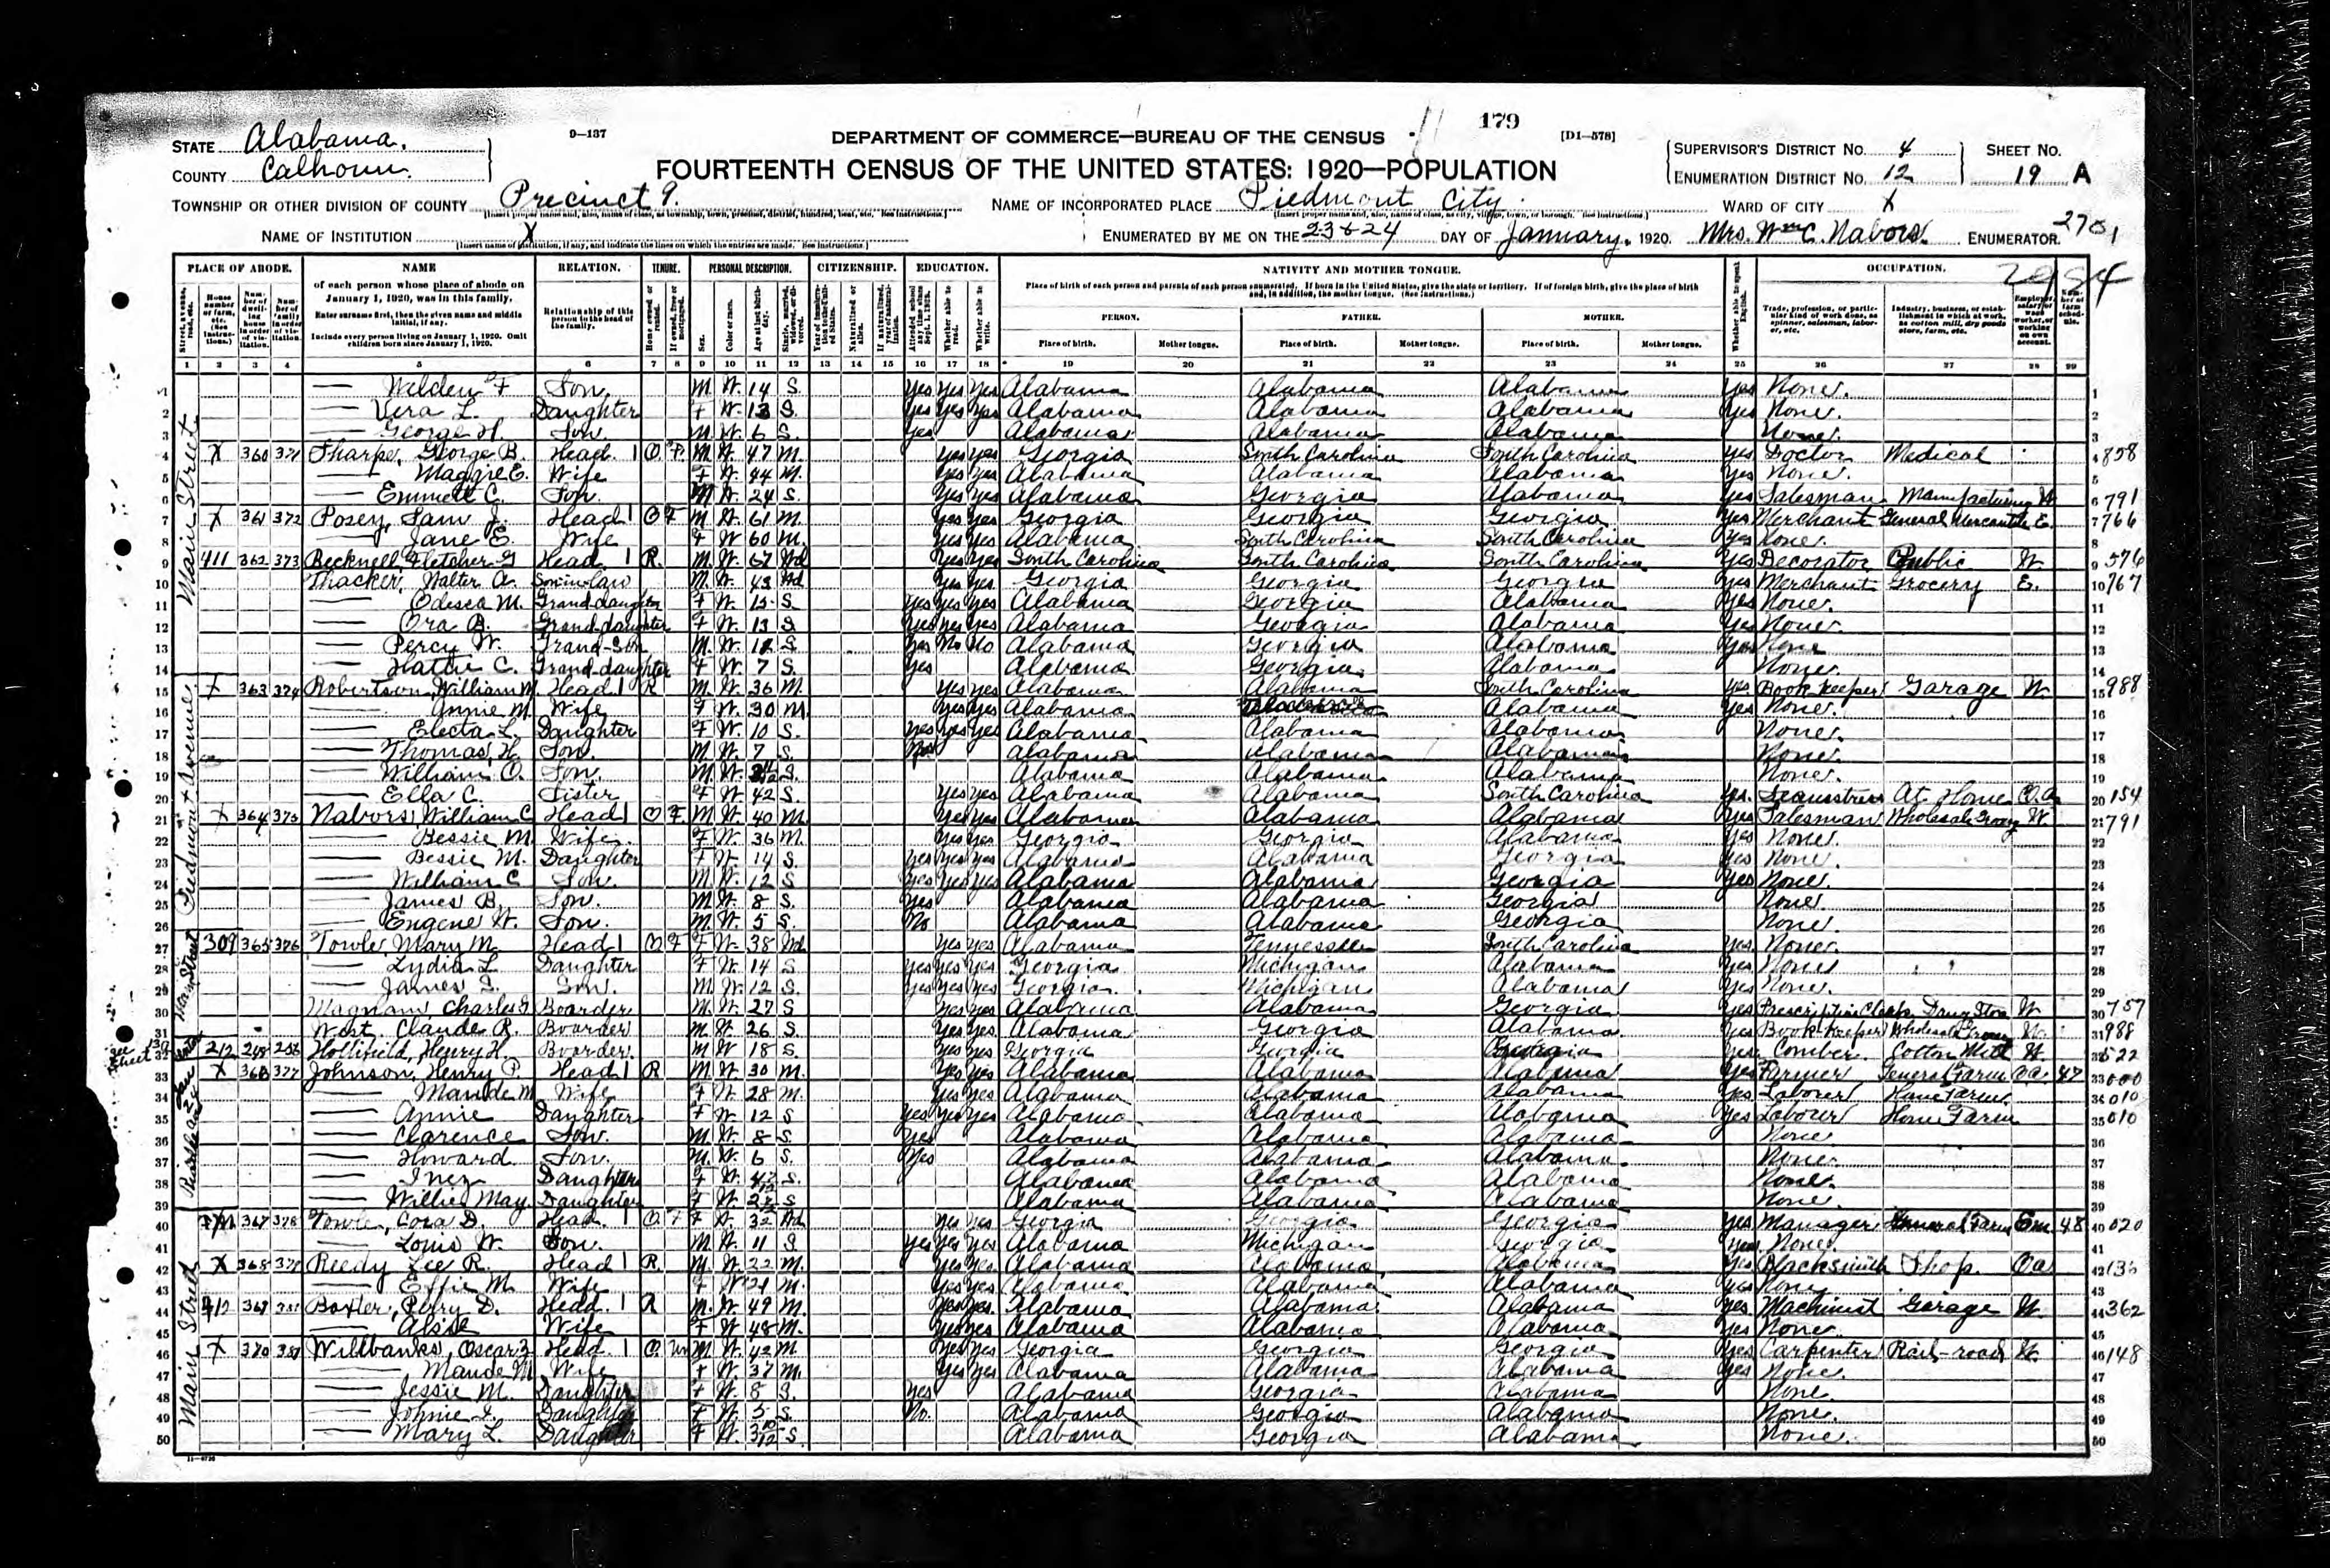 179
9—137
DEPARTMENT OF COMMERCE—BUREAU OF THE CENSUS
[D1—578]
STATE Alabama.
COUNTY Calhoun.
FOURTEENTH CENSUS OF THE UNITED STATES: 1920—POPULATION
SUPERVISOR'S DISTRICT No. 4
ENUMERATION DISTRICT No. 12
SHEET No. 19 A
TOWNSHIP OR OTHER DIVISION OF COUNTY Precinct 9.
NAME OF INCORPORATED PLACE Piedmont City.
WARD OF CITY X
NAME OF INSTITUTION X
ENUMERATED BY ME ON THE 23 & 24 DAY OF January, 1920. Mrs. Wm C. Nabors. ENUMERATOR.
PLACE OF ABODE. NAME RELATION. TENURE. PERSONAL DESCRIPTION. CITIZENSHIP. EDUCATION. NATIVITY AND MOTHER TONGUE. OCCUPATION.
of each person whose place of abode on January 1, 1920, was in this family.
Enter surname first, then the given name and middle initial, if any.
Include every person living on January 1, 1920. Omit children born since January 1, 1920.
Relationship of this person to the head of the family.
PERSON. FATHER. MOTHER.
Place of birth. Mother tongue. Place of birth. Mother tongue. Place of birth. Mother tongue.
1 2 3 4 5 6 7 8 9 10 11 12 13 14 15 16 17 18 19 20 21 22 23 24 25 26 27 28 29
1 — Welden F Son M W 14 S. Yes Yes Yes Alabama Alabama Alabama Yes None. 1
2 — Vera L. Daughter F W. 13 S. Yes Yes Yes Alabama Alabama Alabama Yes None. 2
3 — George H. Son M W. 6 S. Yes Alabama Alabama Alabama None. 3
4 X 360 371 Tharpe, George B. Head 1 O. F. M W. 47 M. Yes Yes Georgia South Carolina South Carolina Yes Doctor Medical 4 858
5 — Maggie E. Wife F W. 44 M. Yes Yes Alabama Alabama Alabama Yes None. 5
6 — Emmett C. Son. M W. 24 S. Yes Yes Alabama Georgia Alabama Yes Salesman Manufacturing W 6 791
7 X 361 372 Posey, Sam J. Head 1 O F M W. 61 M. Yes Yes Georgia Georgia Georgia Yes Merchant General Mercantile E. 7 766
8 — Jane E. Wife F W 60 M. Yes Yes Alabama South Carolina South Carolina Yes None. 8
9 411 362 373 Becknell, Fletcher G Head 1 R. M. W. 67 Wd Yes Yes South Carolina South Carolina South Carolina Yes Decorator Public W. 9 576
10 Thacker, Walter A. Son in law M. W. 43 Wd Yes Yes Georgia Georgia Georgia Yes Merchant Grocery E. 10 767
11 — Odesca M. Grand daughter F W. 15 S Yes Yes Yes Alabama Georgia Alabama Yes None. 11
12 — Ora B. Grand daughter F W. 13 S Yes Yes Yes Alabama Georgia Alabama Yes None. 12
13 — Percy W. Grand Son M. W. 12 S Yes No No Alabama Georgia Alabama Yes None 13
14 — Hattie C. Grand daughter F W. 7 S. Yes Alabama Georgia Alabama None. 14
15 X 363 374 Robertson, William M. Head 1 R M. W. 36 M. Yes Yes Alabama Alabama South Carolina Yes Book keeper Garage W. 15 988
16 — Annie M. Wife F W. 30 M. Yes Yes Alabama Alabama Yes None. 16
17 — Electa L. Daughter F W. 10 S. Yes Yes Yes Alabama Alabama Alabama None. 17
18 — Thomas H. Son. M W. 7 S. Alabama Alabama Alabama None. 18
19 — William O. Son. M. W. S. Alabama Alabama Alabama None. 19
20 — Ella C. Sister F W. 42 S. Yes Yes Alabama Alabama South Carolina Yes. Seamstress At Home O.A. 20 154
21 X 364 375 Nabors, William C Head 1 O F. M W. 40 M. Yes Yes Alabama Alabama Alabama Yes Salesman Wholesale Grocery W. 21 791
22 — Bessie M. Wife. F. W. 36 M. Yes Yes Georgia Georgia Alabama Yes None. 22
23 — Bessie M. Daughter F W. 14 S. Yes Yes Yes Alabama Alabama Georgia Yes None. 23
24 — William C Son. M W. 12 S Yes Yes Yes Alabama Alabama Georgia Yes None. 24
25 — James B. Son. M W. 8 S. Yes Alabama Alabama Georgia None. 25
26 — Eugene W. Son. M W. 5 S. No Alabama Alabama Georgia None. 26
27 309 365 376 Towle, Mary M. Head 1 O F F W. 38 Wd Yes Yes Alabama Tennessee South Carolina Yes. None. 27
28 — Lydia L Daughter F W. 14 S Yes Yes Yes Georgia Michigan Alabama Yes None 28
29 — James S. Son. M. W. 12 S. Yes Yes Yes Georgia Michigan Alabama Yes None. 29
30 Magnam, Charles G Boarder M. W. 27 S Yes Yes Alabama Alabama Georgia Yes Prescription Clerk Drug Store W. 30 757
31 West, Claude R. Boarder M W. 26 S. Yes Yes Alabama Georgia Alabama Yes Book Keeper Wholesale Grocery W. 31 988
32 212 248 256 Hollifield, Henry H. Boarder. M W 18 S. Yes Yes Georgia Georgia Georgia Yes. Comber. Cotton Mill W. 32 522
33 X 366 377 Johnson, Henry P. Head 1 R M W. 30 M. Yes Yes Alabama Alabama Alabama Yes Farmer General Farm OA 47 33 000
34 — Maude M Wife F W. 28 M. Yes Yes Alabama Alabama Alabama Yes Laborer Home Farm 34 010
35 — Annie Daughter F W. 12 S Yes Yes Yes Alabama Alabama Alabama Yes Laborer Home Farm 35 010
36 — Clarence Son. M W. 8 S. Yes Alabama Alabama Alabama None. 36
37 — Howard Son. M. W. 6 S. Yes Alabama Alabama Alabama None. 37
38 — Inez Daughter F W. S. Alabama Alabama Alabama None. 38
39 — Willie May Daughter F W. S Alabama Alabama Alabama None. 39
40 FM 367 378 Towle, Cora D. Head. 1 O F F W. 32 Wd Yes Yes Georgia Georgia Georgia Yes Manager General Farm Em 48 40 020
41 — Louis W. Son. M. W. 11 S Yes Yes Yes Alabama Michigan Georgia Yes None. 41
42 X 368 379 Reedy Lee R. Head 1 R. M. W. 22 M. Yes Yes Alabama Alabama Alabama Yes Blacksmith Shop. Oa 42
43 — Effie M. Wife F W 21 M. Yes Yes Alabama Alabama Alabama Yes None 43
44 412 369 Baxter, Perry D. Head. 1 R M. W. 49 M. Yes Yes. Alabama Alabama Alabama Yes Machinist Garage W. 44 362
45 — Wife F W 48 M. Yes Yes Alabama Alabama Alabama Yes None. 45
46 X 370 381 Willbanks, Oscar Z Head. 1 O Un M W. 42 M. Yes Yes Georgia Georgia Georgia Yes Carpenter Rail-road W. 46 148
47 — Maude M Wife F W. 37 M. Yes Yes Alabama Alabama Alabama Yes None. 47
48 — Jessie M. Daughter F W. 8 S. Yes Alabama Georgia Alabama None. 48
49 — Johnie I. Daughter F W. 5 S. No. Alabama Georgia Alabama None. 49
50 — Mary L. Daughter F W. 3 10/12 S. Alabama Georgia Alabama None. 50
Main Street
Piedmont Avenue
Main Street
Main Street